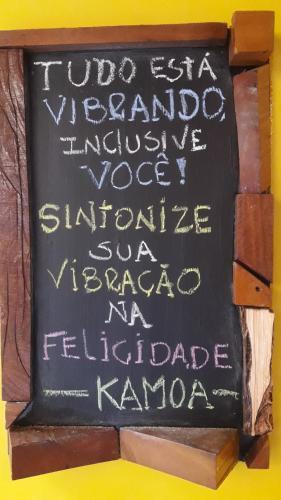 TUDO ESTÁ
VIBRANDO,
INCLUSIVE
VOCÊ!
SINTONIZE
SUA
VIBRAÇÃO
NA
FELICIDADE
— KAMOA —